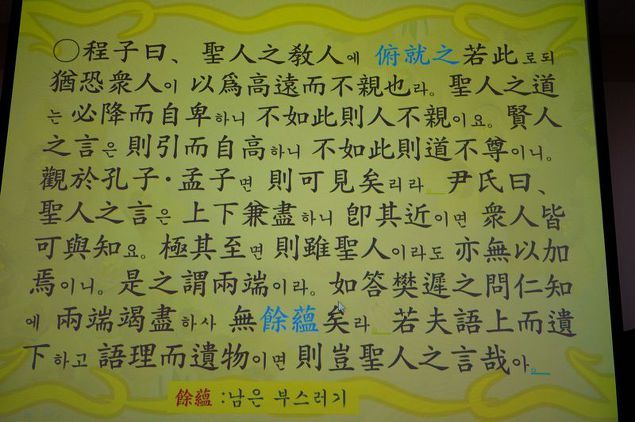 〇程子曰、聖人之敎人에 俯就之若此로되
猶恐衆人이 以爲高遠而不親也라。聖人之道
는 必降而自卑하니 不如此則人不親이요。賢人
之言은 則引而自高하니 不如此則道不尊이니。
觀於孔子·孟子면 則可見矣리라 尹氏曰、
聖人之言은 上下兼盡하니 卽其近이면 衆人皆
可與知요。極其至면 則雖聖人이라도 亦無以加
焉이니。是之謂兩端이라。如答樊遲之問仁知
에 兩端竭盡하사 無餘蘊矣라 若夫語上而遺
下하고 語理而遺物이면 則豈聖人之言哉아。
餘蘊 :남은 부스러기